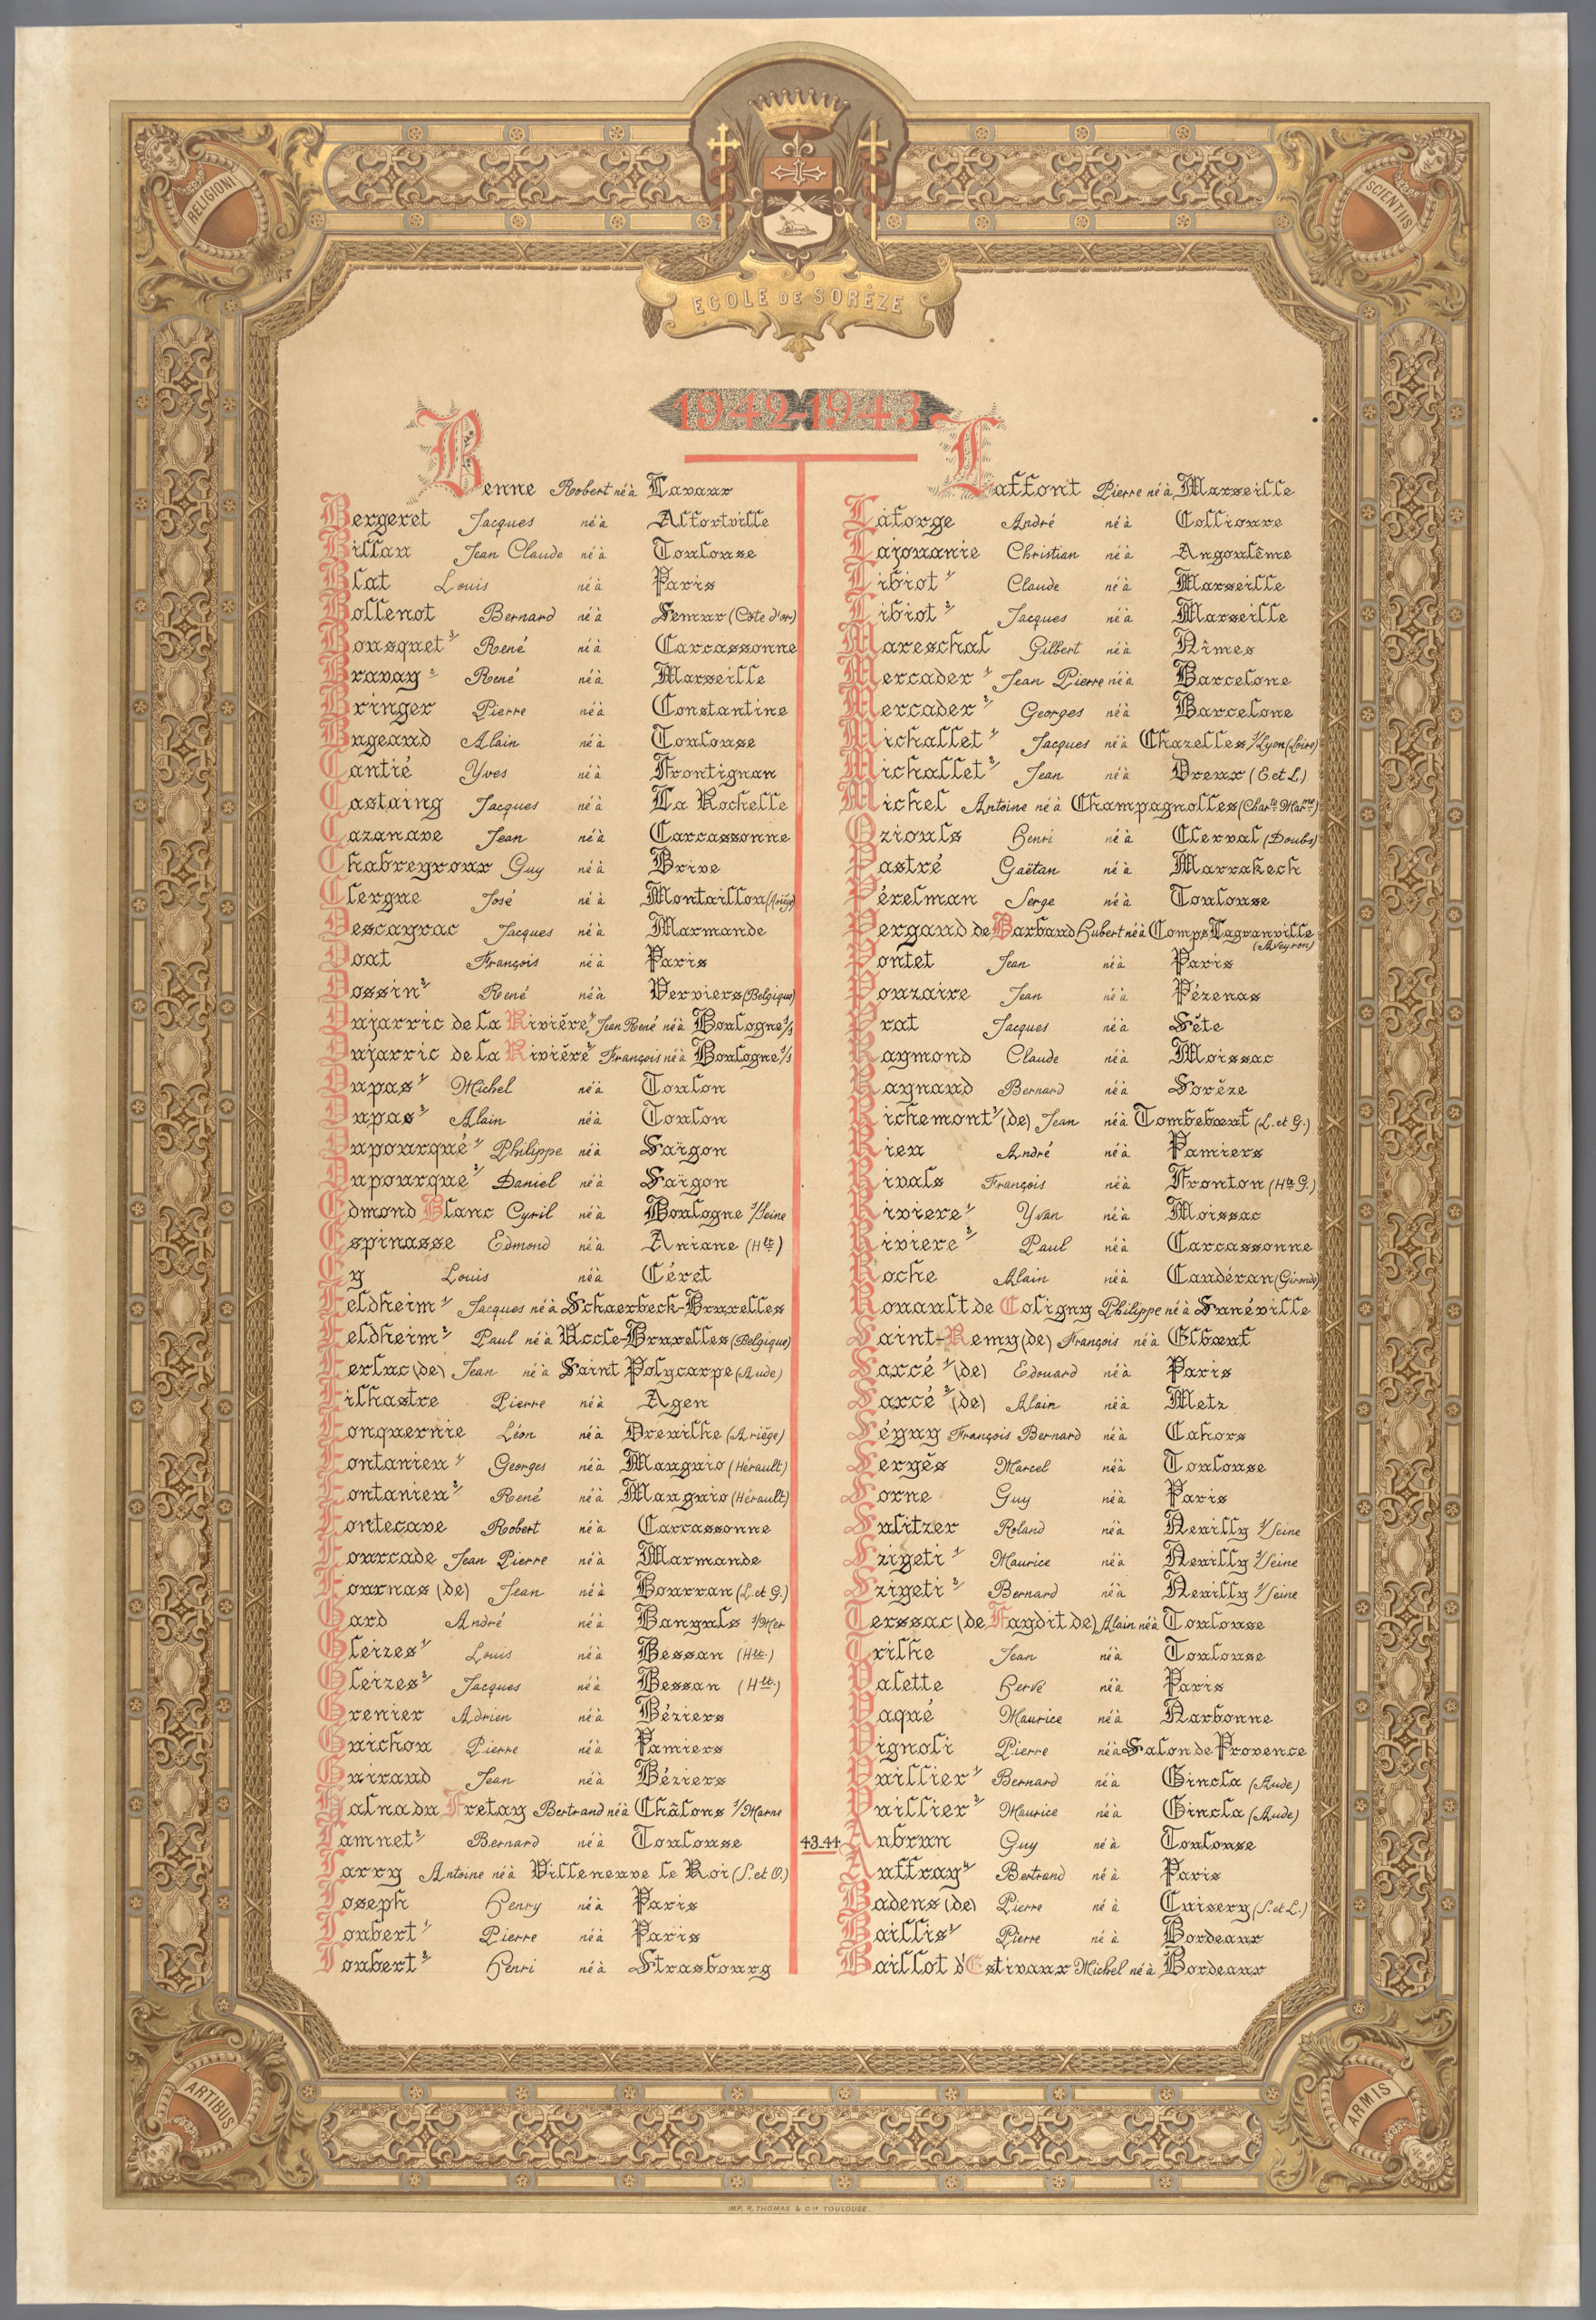 RELIGIONI
SCIENTIIS
ECOLE DE SORÈZE
1942-1943
Benne Robert né à Lavaur
Bergeret Jacques né à Alfortville
Billau Jean Claude né à Toulouse
Blat Louis né à Paris
Bollenot Bernard né à Semur (Côte d'or)
Bousquet 3/ René né à Carcassonne
Bravay 2 René né à Marseille
Bringer Pierre né à Constantine
Bugeaud Alain né à Toulouse
Cantié Yves né à Frontignan
Castaing Jacques né à La Rochelle
Cazanave Jean né à Carcassonne
Chabreyroux Guy né à Brive
Clergue José né à Montaillou (Ariège)
Descayrac Jacques né à Marmande
Doat François né à Paris
Dossin 2 René né à Verviers (Belgique)
Dujarric de la Rivière 1/ Jean René né à Boulogne s/s
Dujarric de la Rivière 2/ François né à Boulogne s/s
Dupas 1/ Michel né à Toulon
Dupas 2/ Alain né à Toulon
Dupourqué 1/ Philippe né à Saïgon
Dupourqué 2/ Daniel né à Saïgon
Edmond Blanc Cyril né à Boulogne s/Seine
Espinasse Edmond né à Aniane (Hlt)
Ey Louis né à Céret
Feldheim 1/ Jacques né à Schaerbeck-Bruxelles
Feldheim 2/ Paul né à Uccle-Bruxelles (Belgique)
Ferluc (de) Jean né à Saint Polycarpe (Aude)
Filhastre Pierre né à Agen
Fonquernie Léon né à Dreuilhe (Ariège)
Fontanieu 1/ Georges né à Mauguio (Hérault)
Fontanieu 2/ René né à Mauguio (Hérault)
Fontecave Robert né à Carcassonne
Fourcade Jean Pierre né à Marmande
Fournas (de) Jean né à Bourran (L. et G.)
Gard André né à Banyuls s/Mer
Gleizes 1/ Louis né à Bessan (Hlt.)
Gleizes 2/ Jacques né à Bessan (Hlt.)
Grenier Adrien né à Béziers
Guichou Pierre né à Pamiers
Guiraud Jean né à Béziers
Halna du Fretay Bertrand né à Châlons s/Marne
Jamnet 2/ Bernard né à Toulouse
Jarry Antoine né à Villeneuve le Roi (S. et O.)
Joseph Henry né à Paris
Joubert 1/ Pierre né à Paris
Joubert 2/ Henri né à Strasbourg
Laffont Pierre né à Marseille
Laforge André né à Collioure
Lajouanie Christian né à Angoulême
Libiot 1/ Claude né à Marseille
Libiot 2/ Jacques né à Marseille
Mareschal Gilbert né à Nîmes
Mercader 1 Jean Pierre né à Barcelone
Mercader 2/ Georges né à Barcelone
Michallet 1/ Jacques né à Chazelles s/Lyon (Loire)
Michallet 2/ Jean né à Dreux (E. et L.)
Michel Antoine né à Champagnolles (Charte Marme)
Oziouls Henri né à Clerval (Doubs)
Pastré Gaëtan né à Marrakech
Pérelman Serge né à Toulouse
Pergaud de Barbaud Hubert né à Comps Lagranville (Aveyron)
Pontet Jean né à Paris
Pouzaire Jean né à Pézenas
Prat Jacques né à Sète
Raymond Claude né à Moissac
Raynaud Bernard né à Sorèze
Richemont 3/ (de) Jean né à Tombebœuf (L. et G.)
Rieu André né à Pamiers
Rivals François né à Fronton (Hte G.)
Riviere 1/ Yvan né à Moissac
Riviere 2/ Paul né à Carcassonne
Roche Alain né à Caudéran (Gironde)
Rouault de Coligny Philippe né à Sunéville
Saint-Remy (de) François né à Elbœuf
Sarcé 1/ (de) Edouard né à Paris
Sarcé 2/ (de) Alain né à Metz
Séguy François Bernard né à Cahors
Sergès Marcel né à Toulouse
Sorne Guy né à Paris
Sulitzer Roland né à Neuilly s/Seine
Szigeti 1 Maurice né à Neuilly s/Seine
Szigeti 2 Bernard né à Neuilly s/Seine
Terssac (de Faydit de) Alain né à Toulouse
Trilhe Jean né à Toulouse
Valette Hervé né à Paris
Vaqué Maurice né à Narbonne
Vignoli Pierre né à Salon de Provence
Vuillier 1 Bernard né à Gincla (Aude)
Vuillier 2/ Maurice né à Gincla (Aude)
43_44 Aubrun Guy né à Toulouse
Auffray 2/ Bertrand né à Paris
Badens (de) Pierre né à Cuisery (S. et L.)
Baillis 2/ Pierre né à Bordeaux
Baillot d'Estivaux Michel né à Bordeaux
ARTIBUS
ARMIS
IMP. R. THOMAS & Cie TOULOUSE.